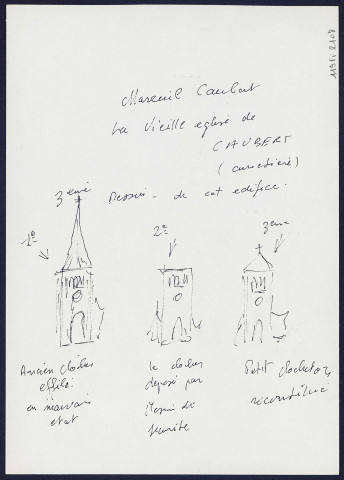 119Fi2108
Mareuil Caubert
La Vieille eglise de
CAUBERT
(cimetière)
3eme
Dessin - de cet edifice.
1e
2e
3eme
Ancien clocher
effilé
en mauvais
etat
le clocher
deposé par
mesure de
securite
Petit clocheton
reconstitué